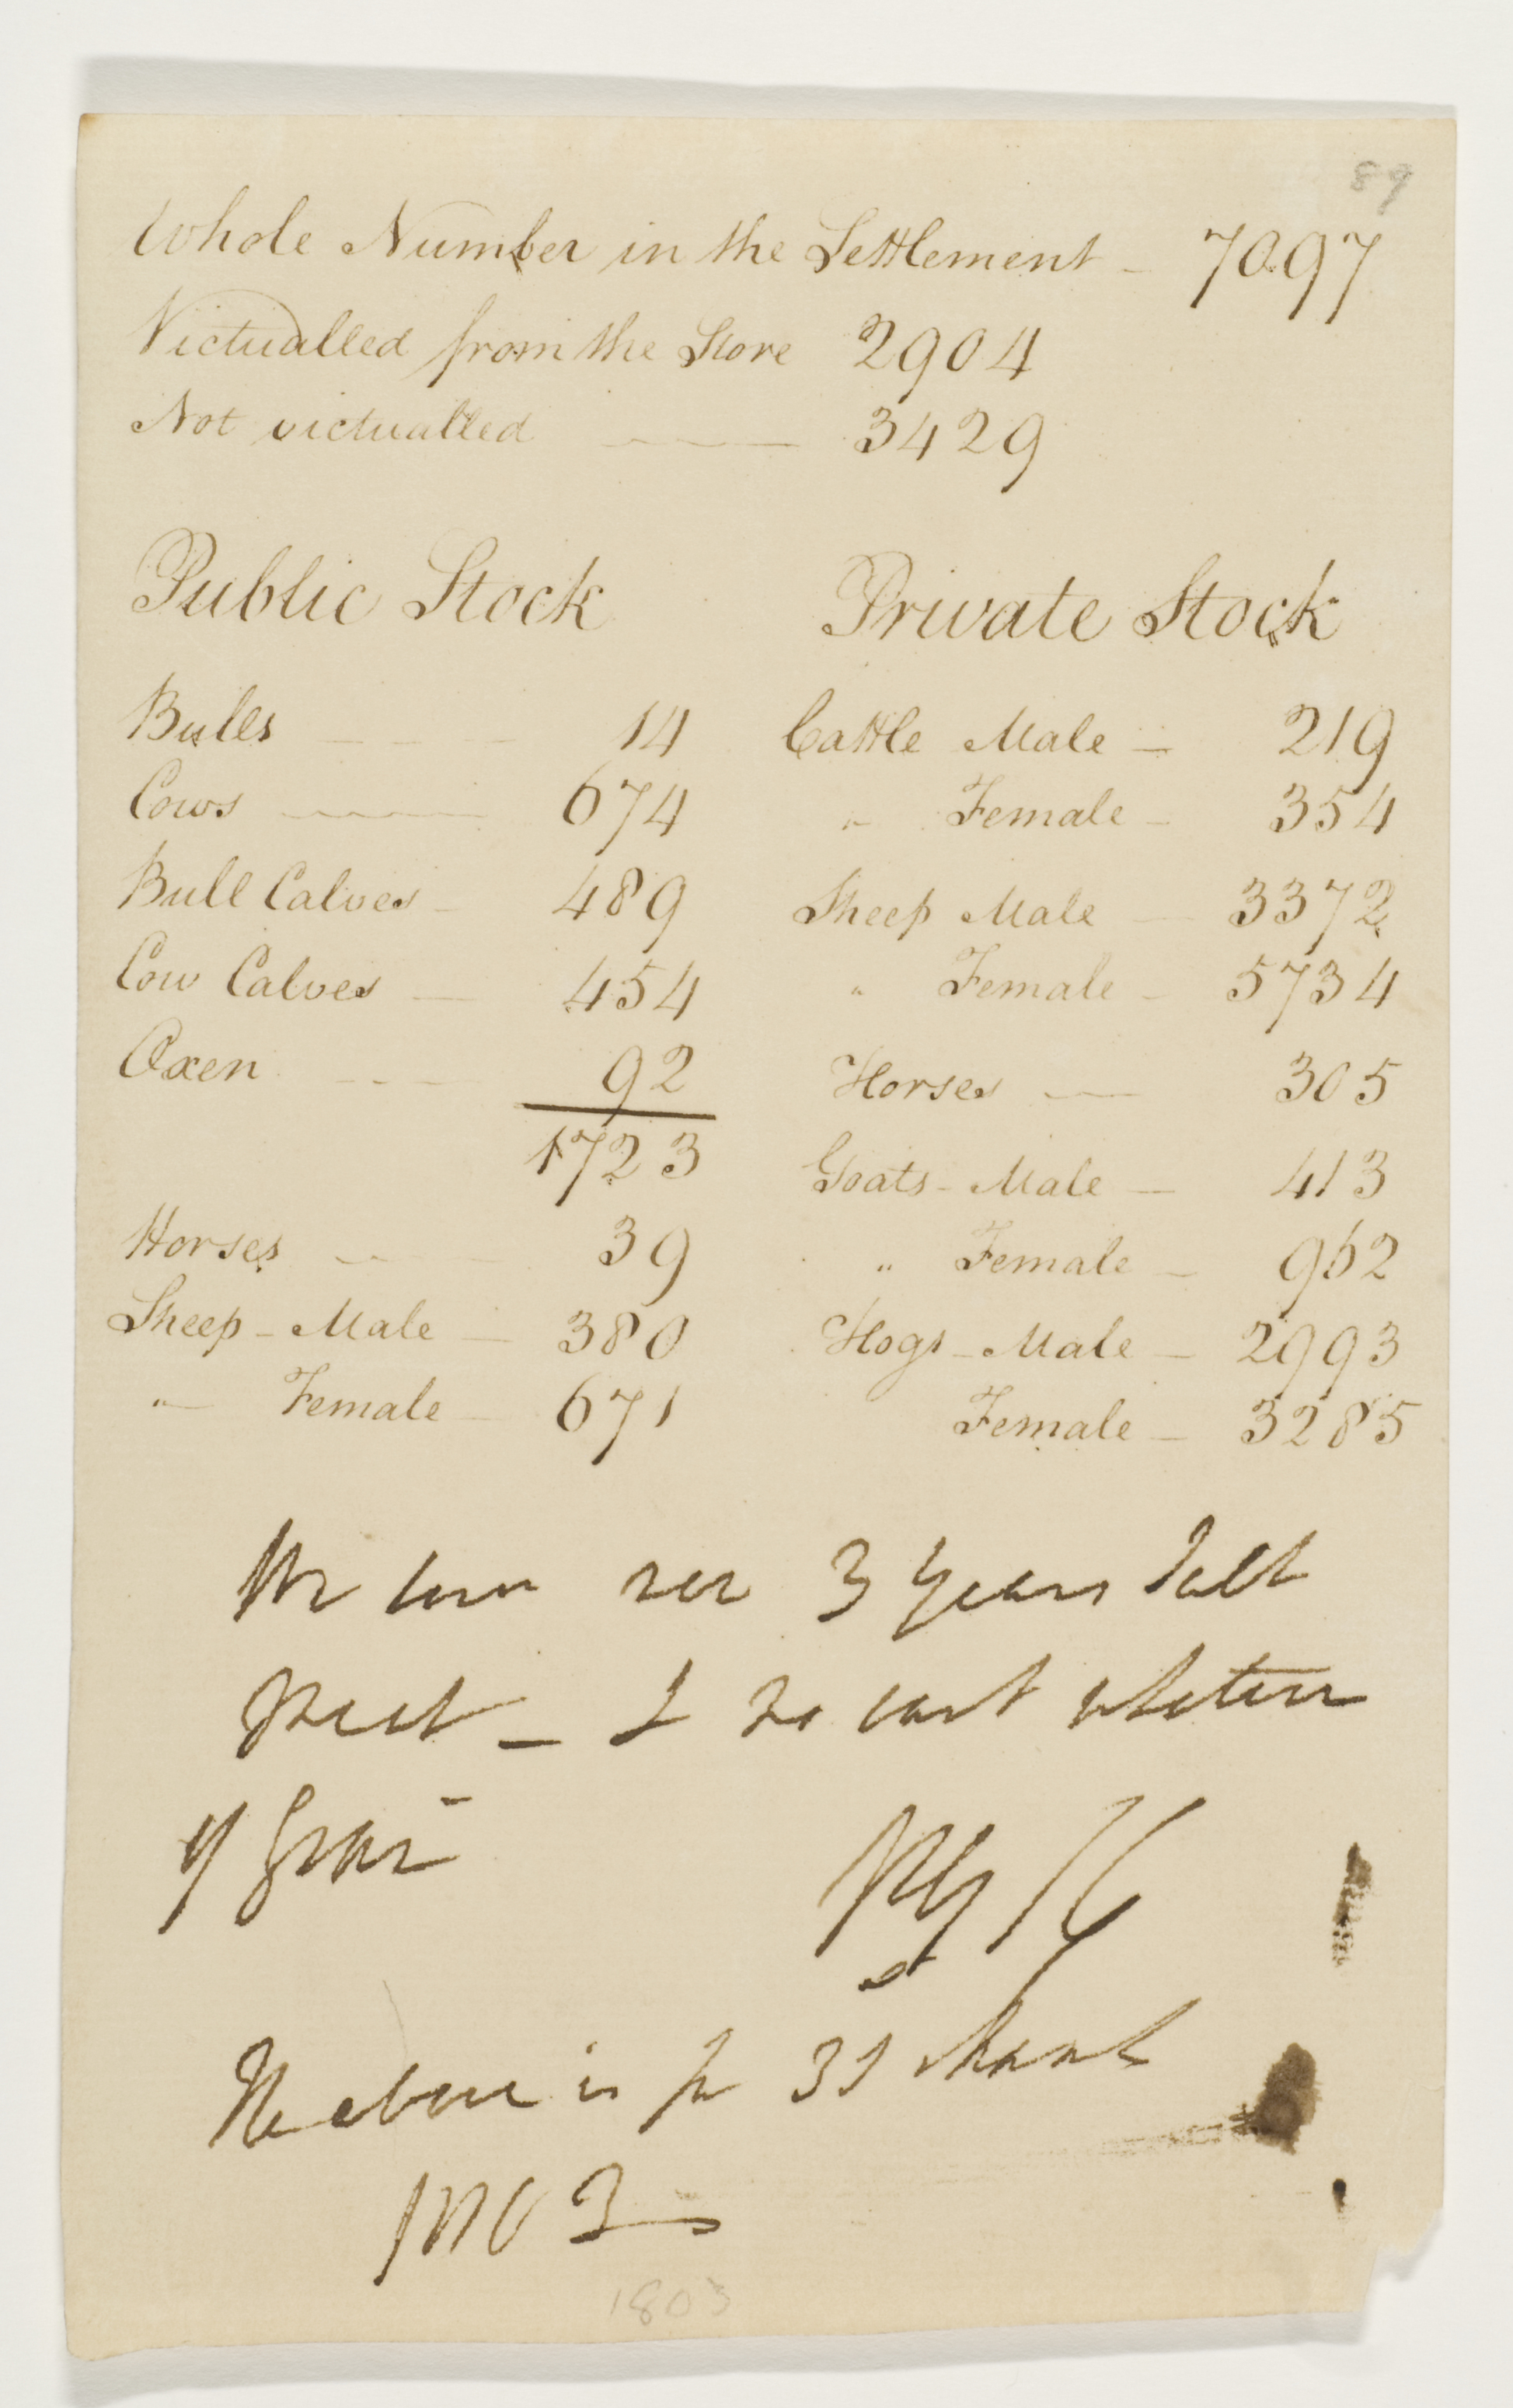 89
Whole Number in the Settlement - 7097
Victualled from the Store 2904
Not victualled —— 3429
Public Stock
Bulls - - - 14
Cows —— 674
Bull Calves - 489
Cow Calves — 454
Oxen - - - 92
1723
Horses — 39
Sheep - Male — 380
" — Female - 671
Private Stock
Cattle Male — 219
" Female - 354
Sheep Male — 3372
" Female - 5734
Horses — 305
Goats - Male — 413
" Female - 962
Hogs - Male — 2993
Female - 3285
We have now 3 Years Salt
Meat — & no want whatever
of Grain
PGK
The above is for
1803
1803